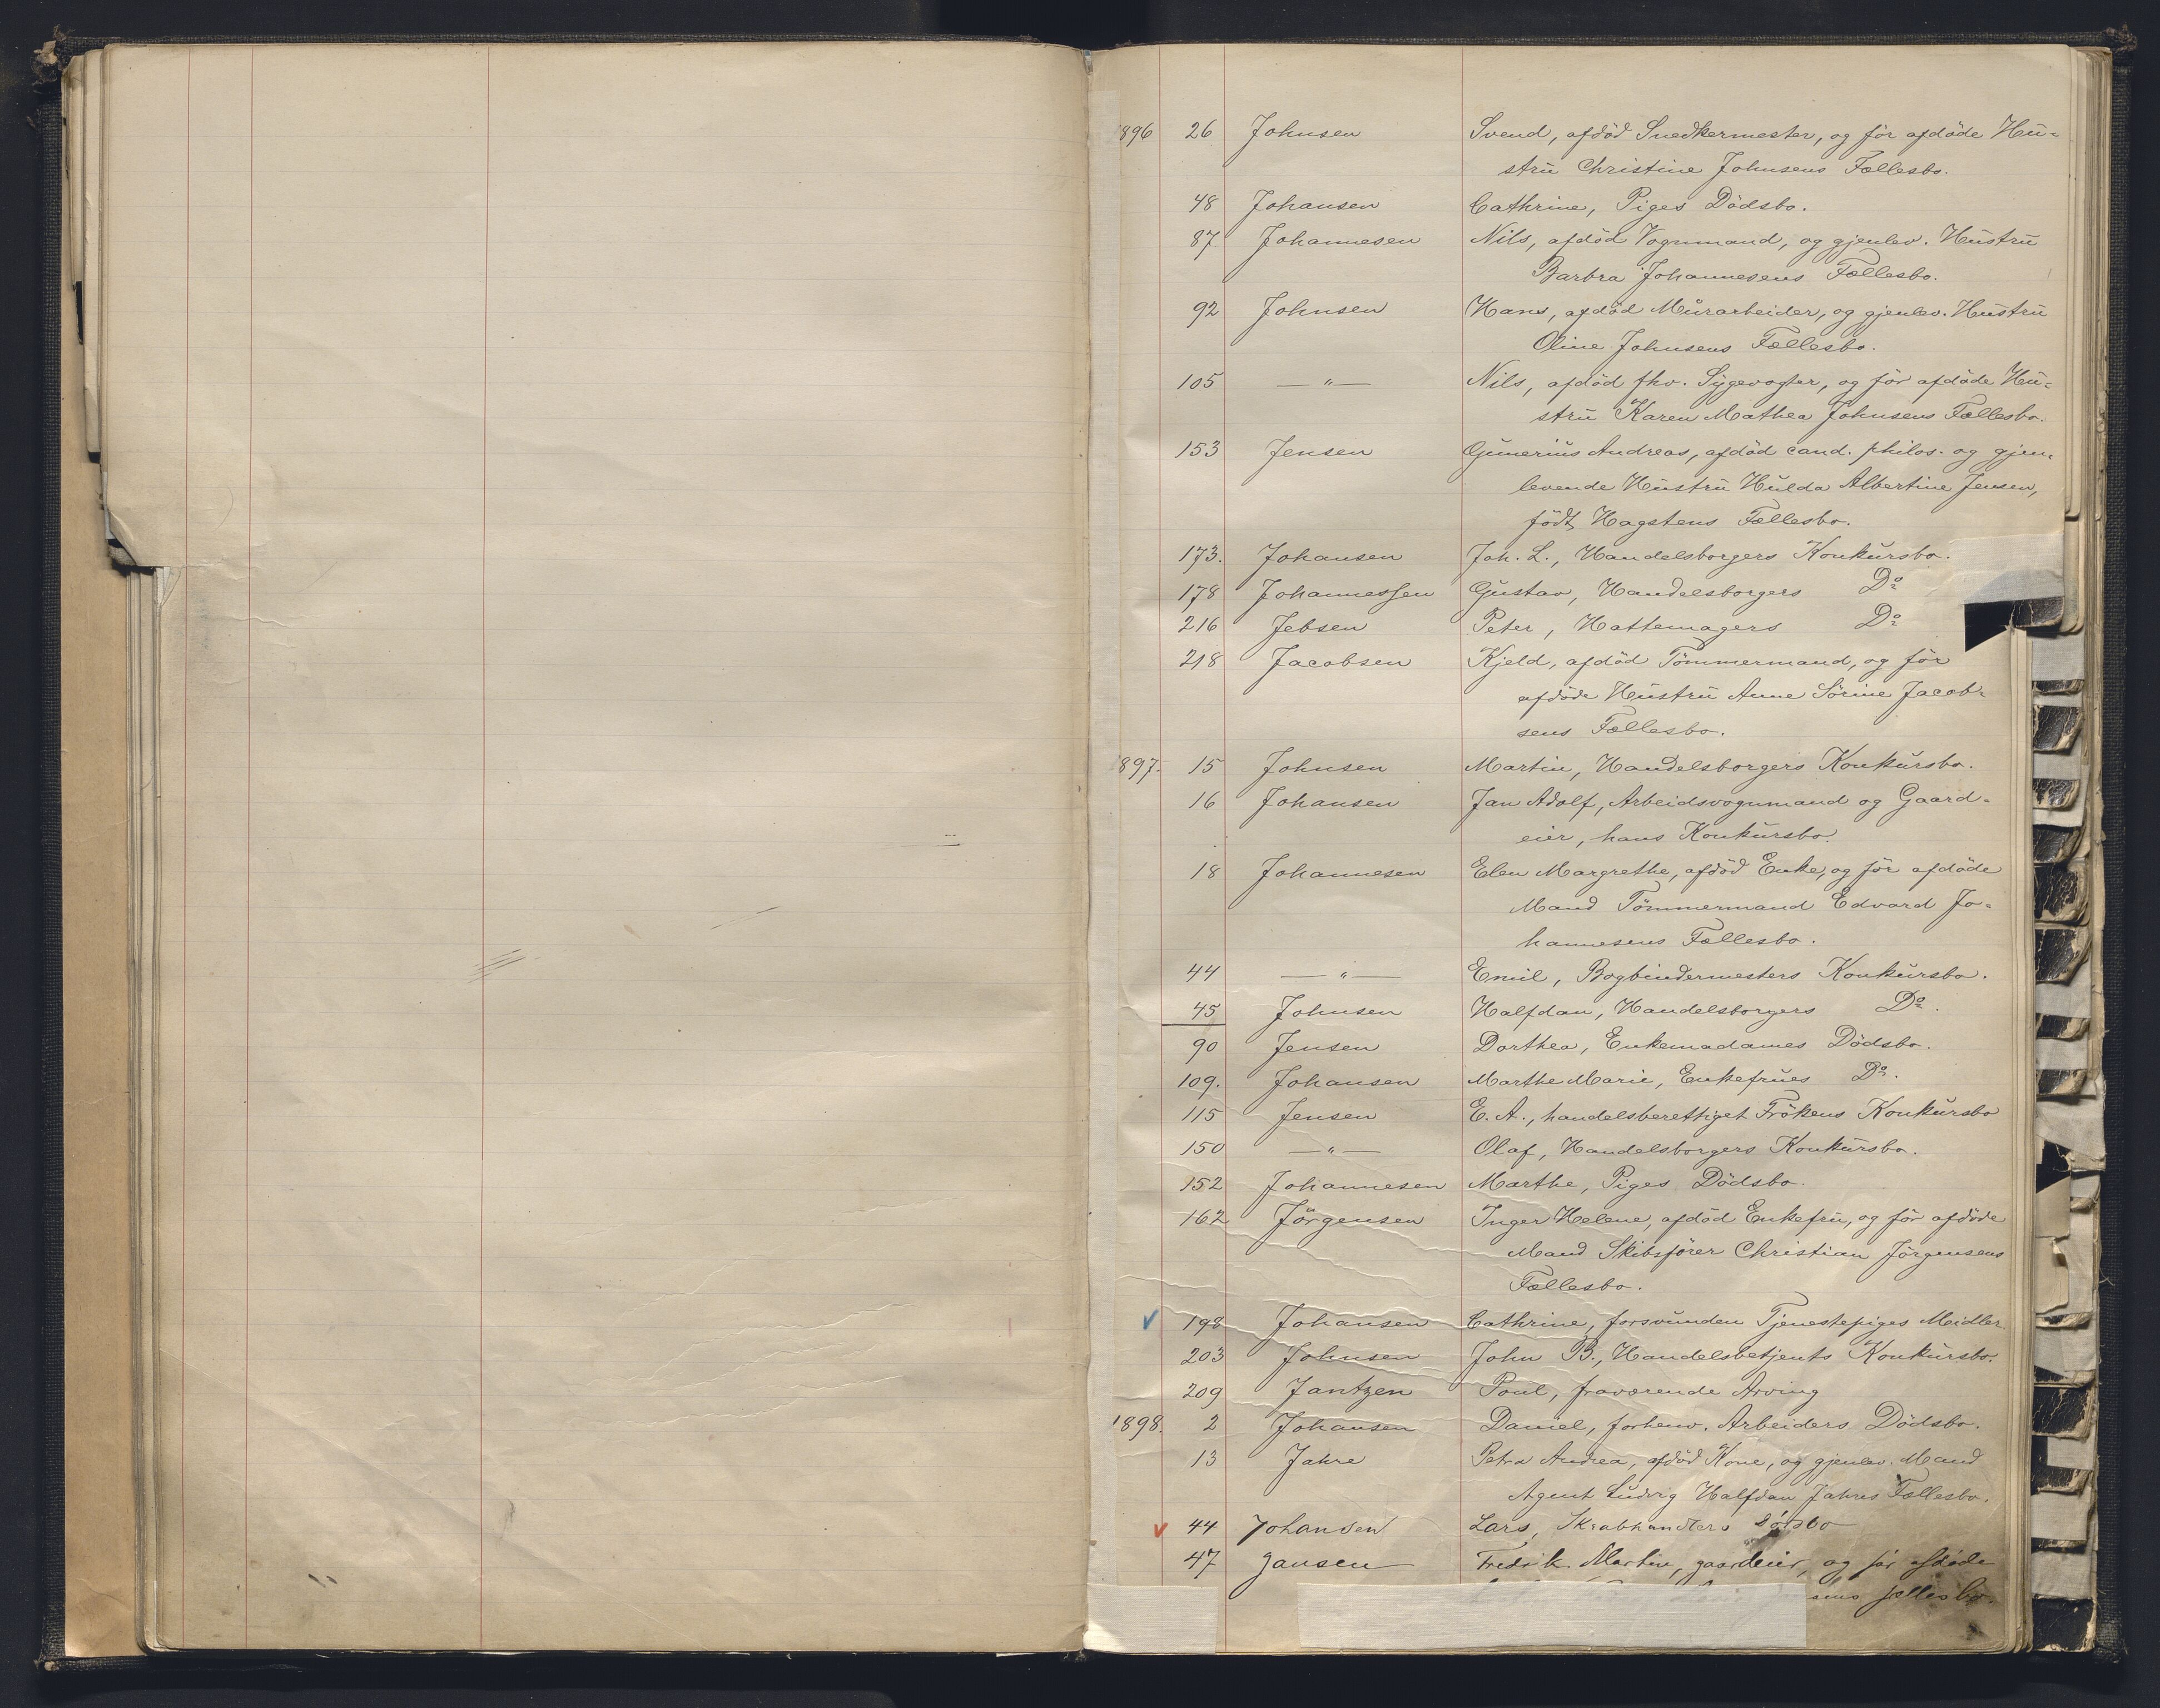 1896 26 Johnsen Svend, afdöd Snedkermester, og för afdöde Hu-
stru Christine Johnsens Fællesbo.
48 Johansen Cathrine, Piges Dödsbo.
87 Johannesen Nils, afdöd Vognmand, og gjenlev. Hustru
Barbra Johannesens Fællesbo.
92 Johnsen Hans, afdöd Murarbeider, og gjenlev. Hustru
Oline Johnsens Fællesbo.
105 —"— Nils, afdöd fhv. Sygevogter, og för afdöde Hu-
stru Karen Mathea Johnsens Fællesbo.
153 Jensen Gunerius Andreas, afdöd cand. philos. og gjen-
levende Hustru Hulda Albertine Jensen,
födt Hagstens Fællesbo.
173. Johansen Joh. L., Handelsborgers Konkursbo.
178 Johannessen Gustav, Handelsborgers Do
216 Jebsen Peter, Hattemagers Do
218 Jacobsen Kjeld, afdöd Tömmermand, og för
afdöde Hustru Anne Sörine Jacob-
sens Fællesbo.
1897. 15 Johnsen Martin, Handelsborgers Konkursbo.
16 Johansen Jan Adolf, Arbeidsvognmand og Gaard-
eier, hans Konkursbo.
18 Johannesen Elen Margrethe, afdöd Enke, og för afdöde
Mand Tömmermand Edvard Jo-
hannesens Fællesbo.
44 —"— Emil, Bogbindermesters Konkursbo.
45 Johnsen Halfdan, Handelsborgers Do.
90 Jensen Dorthea, Enkemadames Dödsbo.
109. Johansen Marthe Marie, Enkefrues Do.
115 Jensen E. A., handelsberettiget Frökens Konkursbo
150 —"— Olaf, Handelsborgers Konkursbo.
152 Johannesen Marthe, Piges Dödsbo.
162 Jörgensen Inger Helene, afdöd Enkefru, og för afdöde
Mand Skibsförer Christian Jörgensens
Fællesbo.
198 Johansen Cathrine, forsvunden Tjenestepiges Meidler
203 Johnsen John B., Handelsbetjents Konkursbo.
209 Jantzen Poul, fraværende Arving
1898. 2 Johansen Daniel, forhenv. Arbeiders Dödsbo.
13 Jahre Petra Andrea, afdöd Kone, og gjenlev. Mand
Agent Ludvig Halfdan Jahres Fællesbo.
44 Johansen Lars, Skrabhandlers Dödsbo
47 Jansen Fredrik Martin, gaardeier, og før afdøde
sens fællesbo.